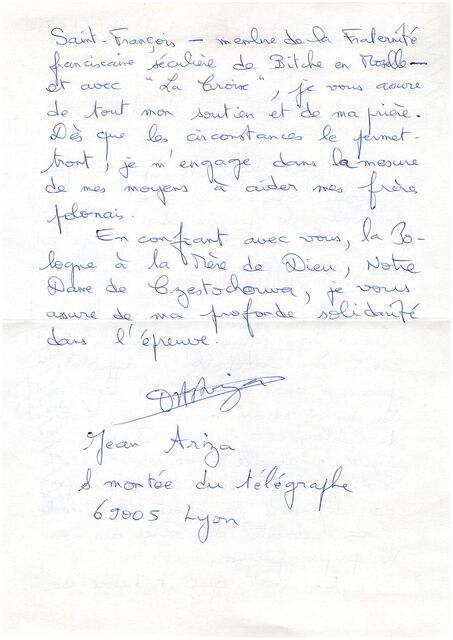 Saint-François — membre de la Fraternité
franciscaine séculière de Bitche en Moselle —
et avec "La Croix", je vous assure
de tout mon soutien et de ma prière.
Dès que les circonstances le permet-
tront, je m'engage dans la mesure
de mes moyens à aider mes frère
polonais.
En confiant avec vous, la Po-
logne à la Mère de Dieu, Notre
Dame de Czestochowa, je vous
assure de ma profonde solidarité
dans l'épreuve.
Jean Ariza
8 montée du télégraphe
69005 Lyon